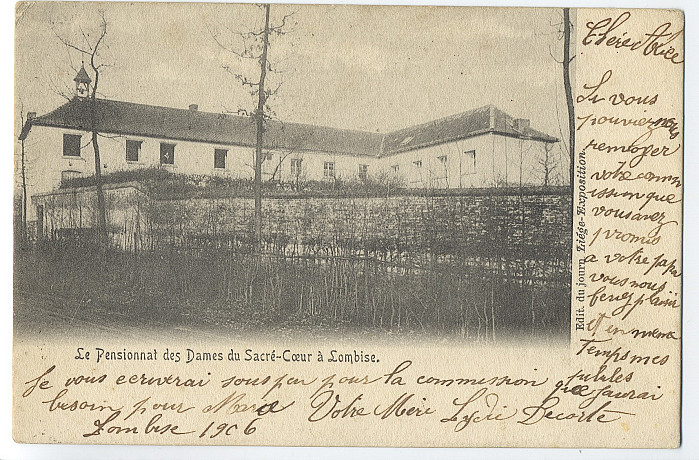 Chère Alice
Si vous
pouviez nous
remoyer
votre comm
ission que
vous avez
promis
a votre papa
vous nous
ferez plaisir
Et en même
Temps mes
Edit. du journ. Liége-Exposition.
Le Pensionnat des Dames du Sacré-Cœur à Lombise.
Je vous ecriverai sous peu pour la commission que j'aurai
besoin pour Votre Mère Lydie Decorte
Lombise 1906